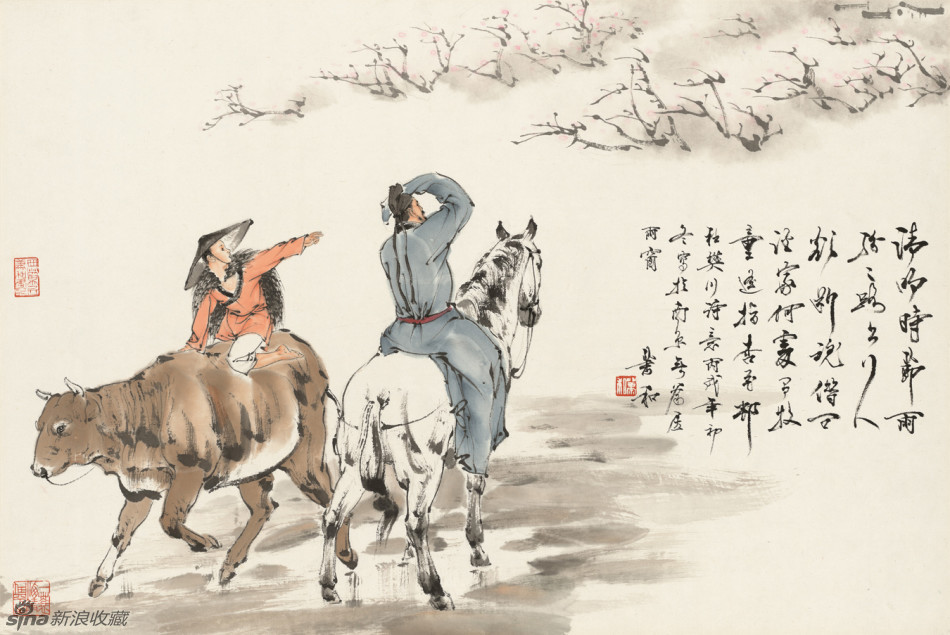 清明時節雨
紛々路上行人
欲斷魂借问
酒家何處有牧
童遥指杏花邨
杜樊川詩意丙戌年初
冬寫於
雨窗
sina新浪收藏